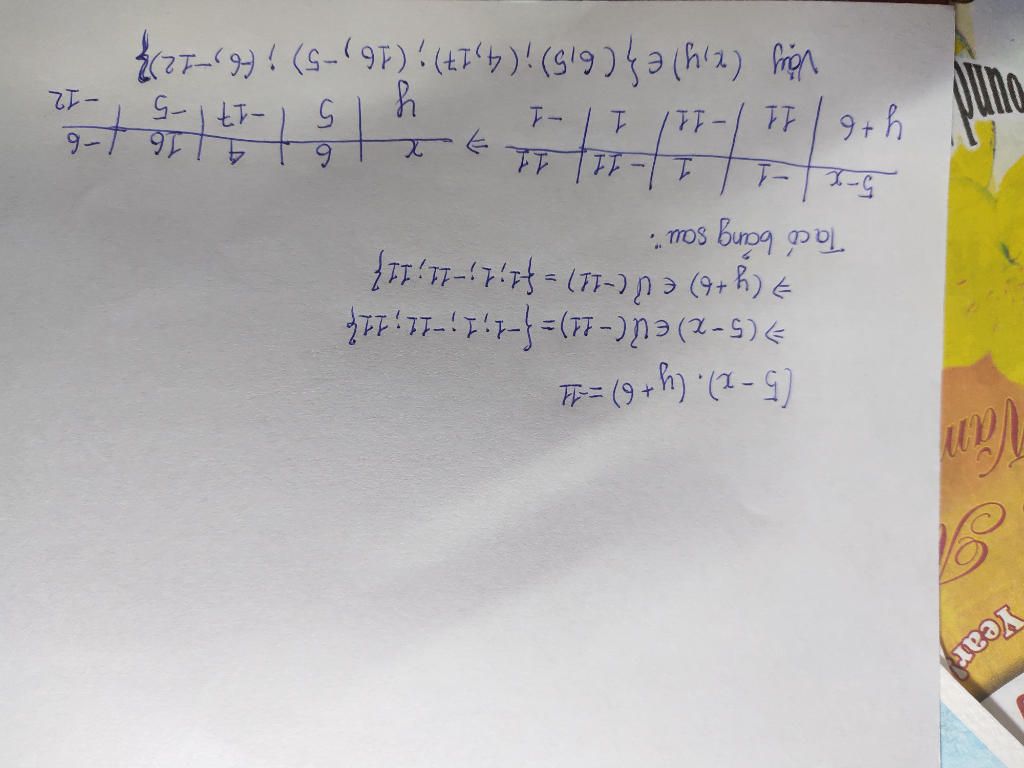 (5 - x). (y + 6) = -11
⇒ (5 - x) ∈ Ư(-11) = {-1; 1; -11; 11}
⇒ (y + 6) ∈ Ư(-11) = {-1; 1; -11; 11}
Ta có bảng sau:
5-x | -1 | 1 | -11 | 11 ⇒ x | 6 | 4 | 16 | -6
y+6 | 11 | -11 | 1 | -1 y | 5 | -17 | -5 | -12
Vậy (x,y) ∈ {(6,5); (4,17); (16,-5); (-6,-12)}
Year